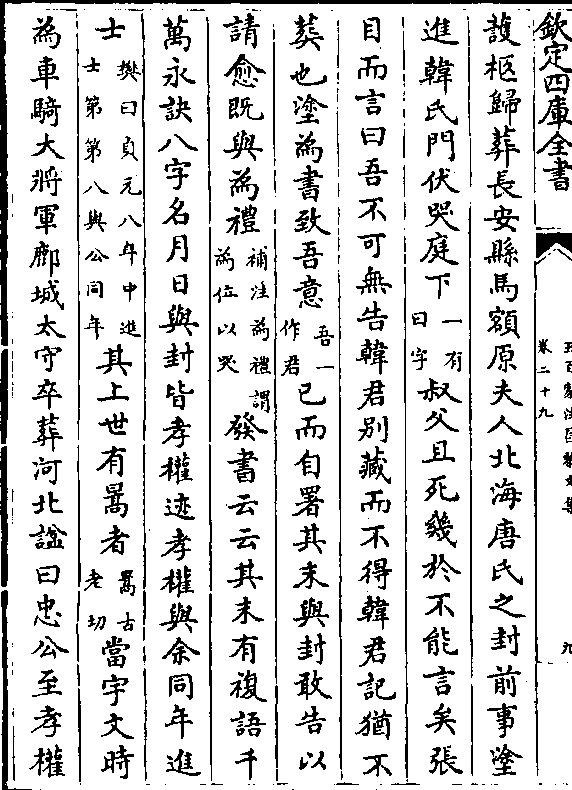 欽定四庫全書
卷二十九
護柩歸葬長安縣馬額原夫人北海唐氏之封前事塗
進韓氏門伏哭庭下一有曰字叔父且死幾於不能言矣張
目而言曰吾不可無告韓君别藏而不得韓君記猶不
葬也塗為書致吾意吾一作君已而自署其末與封敢告以
請愈既與為禮補注為禮謂為位以哭發書云云其末有複語千
萬永訣八字名月日與封皆孝權迹孝權與余同年進
士樊曰貞元八年中進士第第八與公同年其上世有暠者暠古老切當宇文時
為車騎大將軍鄜城太守卒葬河北諡曰忠公至孝權